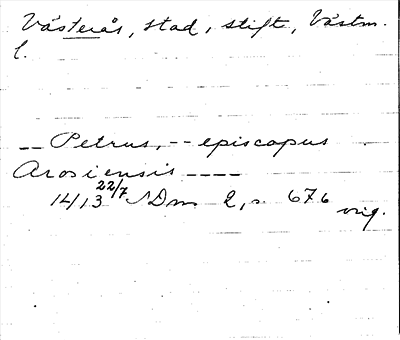 Västerås, stad, stift, Västm.
l.
-- Petrus, -- episcopus
Arosiensis ----
1413 22/7 SDns 2, s. 676
orig.